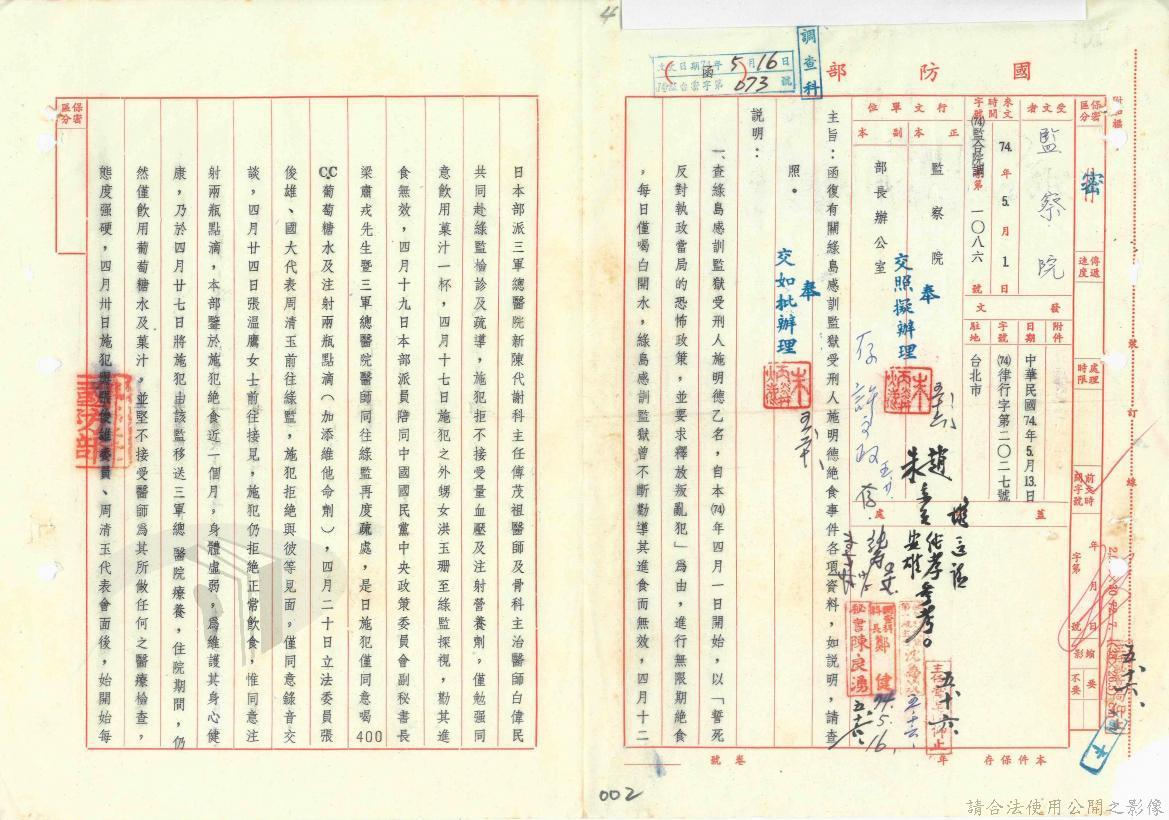 國防部
函
調查科
收文日期74年5月16日
字第073號
保密區分
密
傳遞速度
處理時限
受文者
監察院
來文時間字號
74.年5.月1.日
(74)監台院調第一〇八六號
行文單位
正本
監察院
副本
部長辦公室
發文
附件
日期
中華民國74.年5.月13.日
字號
(74)律行字第二〇二七號
駐地
台北市
奉
交照擬辦理
奉
交如批辦理
主旨：函復有關綠島感訓監獄受刑人施明德絶食事件各項資料，如説明，請查
照。
説明：
一、查綠島感訓監獄受刑人施明德乙名，自本(74)年四月一日開始，以「誓死
反對執政當局的恐怖政策，並要求釋放叛亂犯」為由，進行無限期絶食
，每日僅喝白開水，綠島感訓監獄曾不斷勸導其進食而無效，四月十二
秘書陳良湧
74.5.16.
五、十六、
本件保存年
卷號
4
002
保密區分
日本部派三軍總醫院新陳代謝科主任傅茂祖醫師及骨科主治醫師白偉民
共同赴綠監檢診及疏導，施犯拒不接受量血壓及注射營養劑，僅勉强同
意飲用菓汁一杯，四月十七日施犯之外甥女洪玉珊至綠監探視，勸其進
食無效，四月十九日本部派員陪同中國國民黨中央政策委員會副秘書長
梁肅戎先生暨三軍總醫院醫師同往綠監再度疏處，是日施犯僅同意喝400
CC葡萄糖水及注射兩瓶點滴（加添維他命劑），四月二十日立法委員張
俊雄、國大代表周清玉前往綠監，施犯拒絶與彼等見面，僅同意錄音交
談，四月廿四日張溫鷹女士前往接見，施犯仍拒絶正常飲食，惟同意注
射兩瓶點滴，本部鑒於施犯絶食近一個月，身體虛弱，為維護其身心健
康，乃於四月廿七日將施犯由該監移送三軍總 醫院療養，住院期間，仍
然僅飲用葡萄糖水及菓汁，並堅不接受醫師為其所做任何之醫療檢查，
態度强硬，四月卅日施犯與張俊雄委員、周清玉代表會面後，始開始每
請合法使用公開之影像